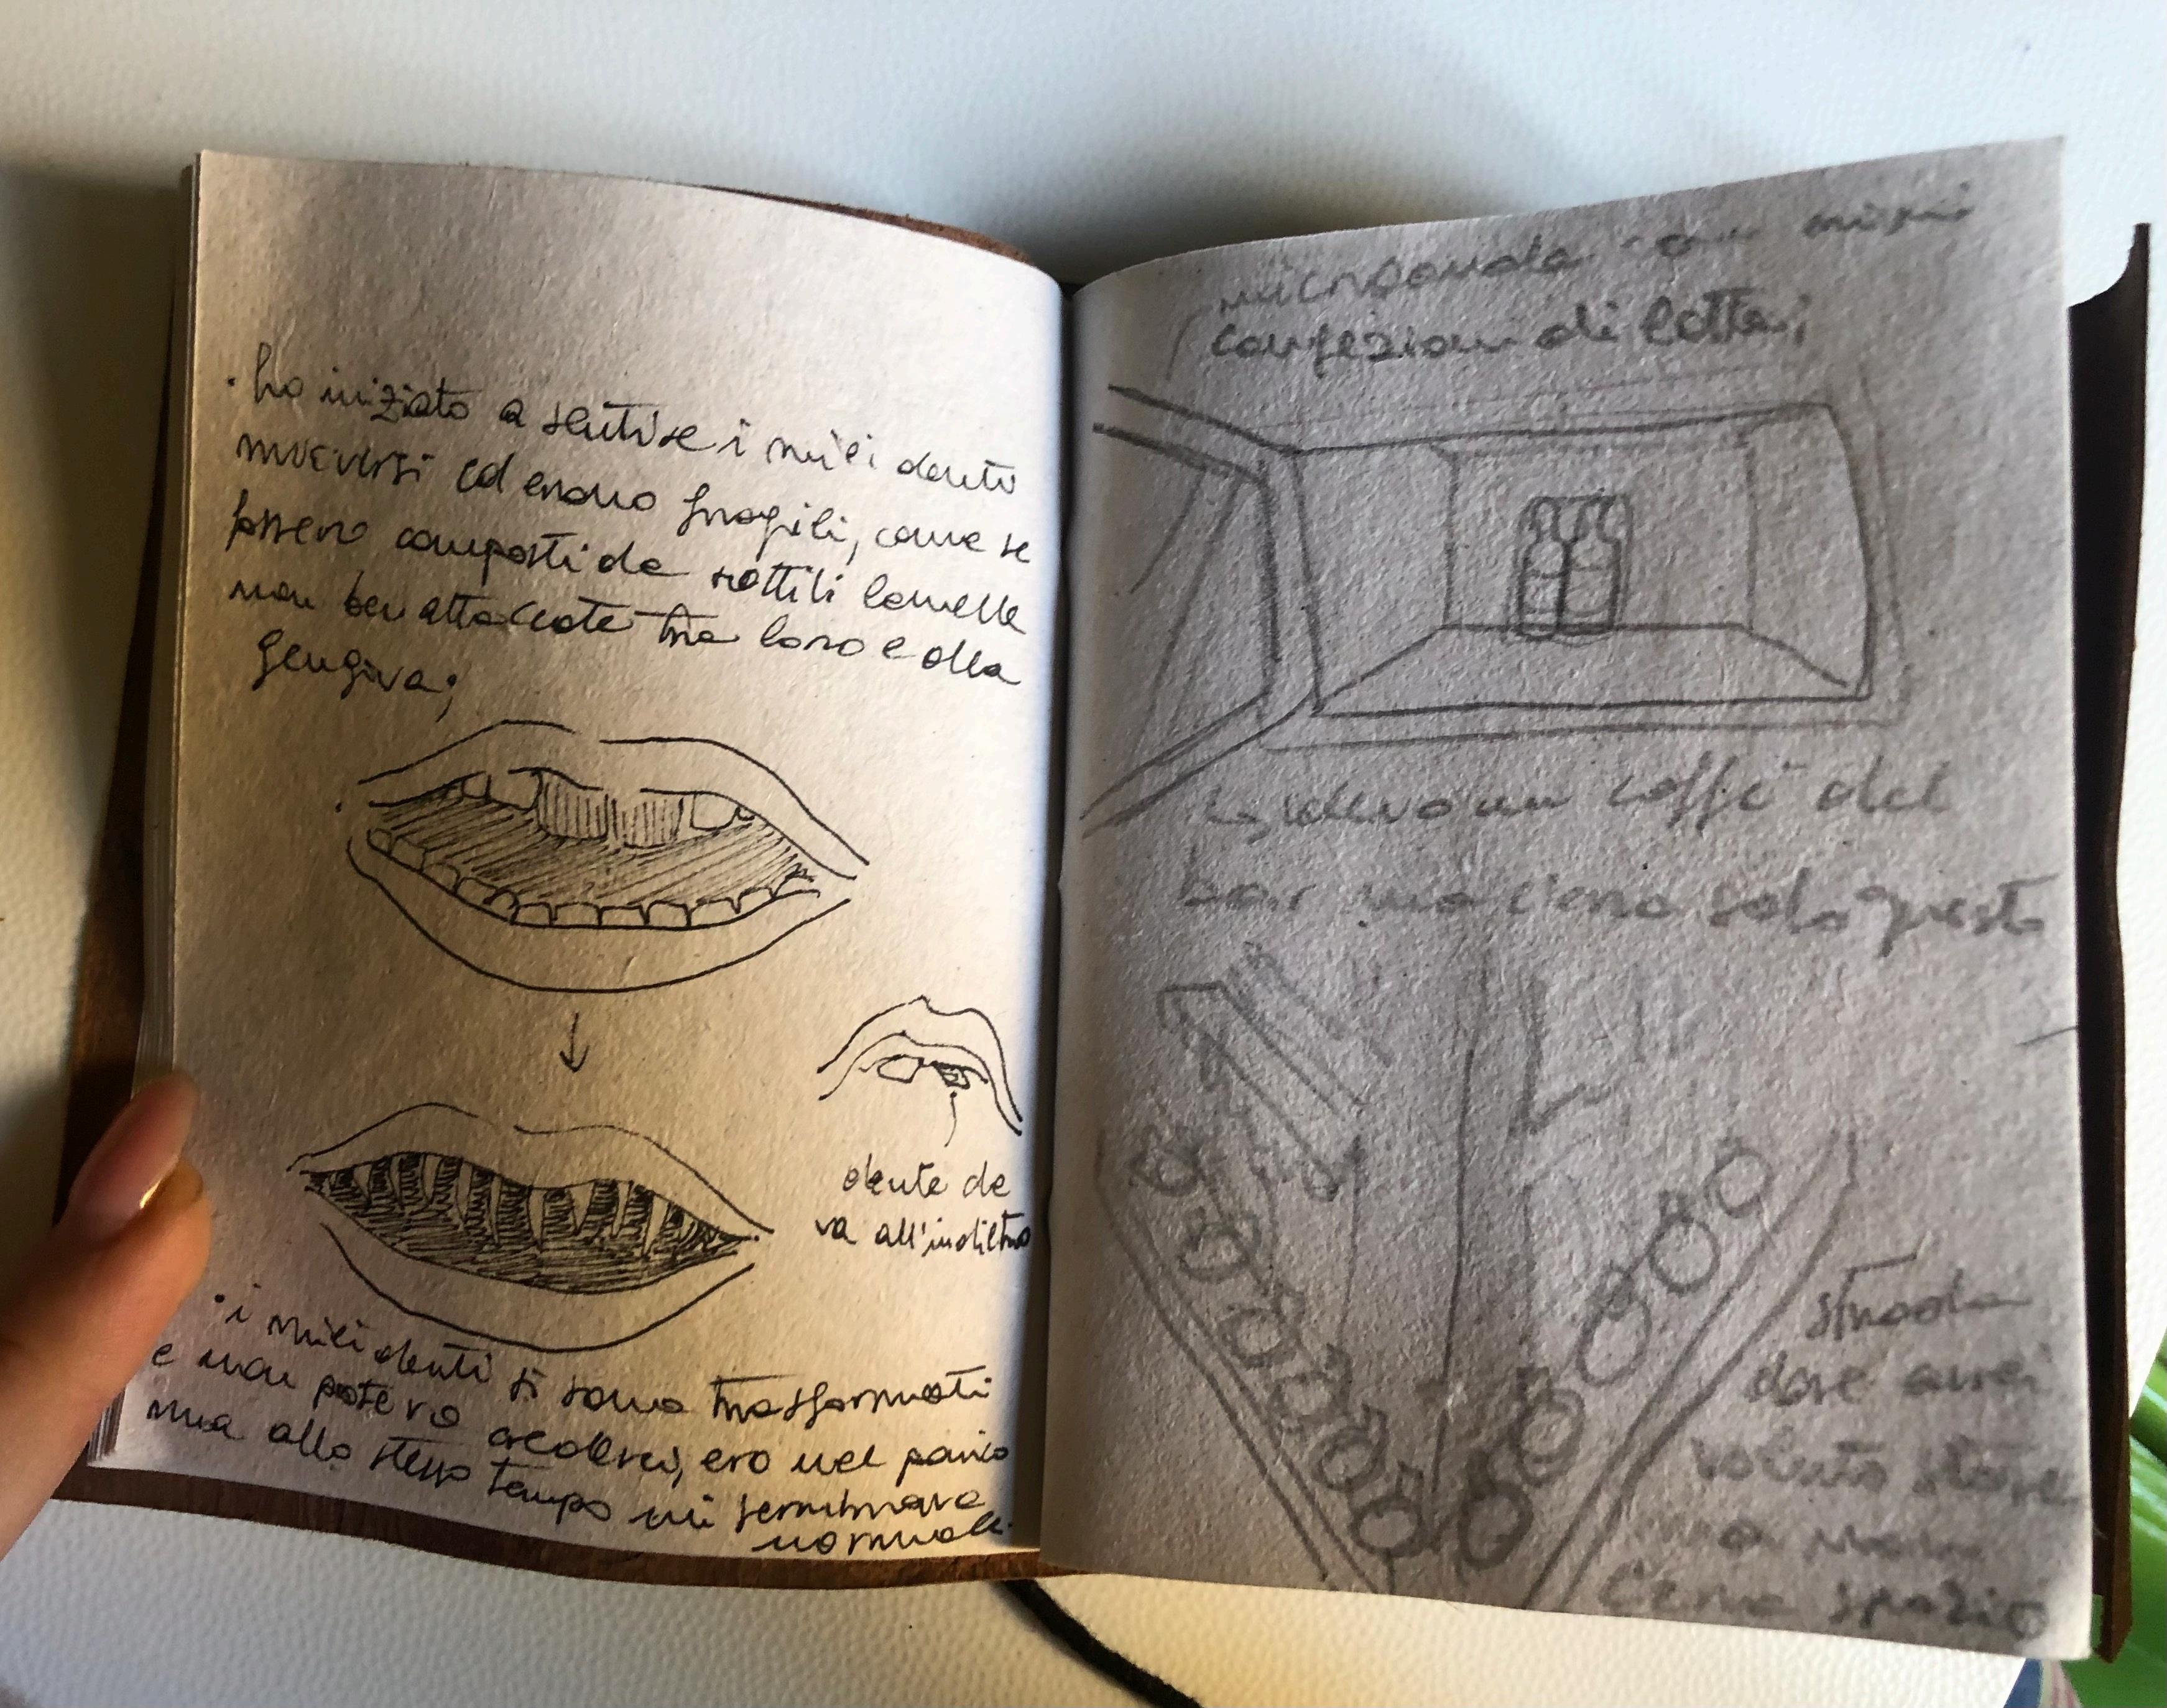 · ho iniziato a sentire i miei denti
muoversi ed erano fragili, come se
fossero composti da sottili lamelle
non ben attaccate tra loro e alla
gengiva;
dente che
va all'indietro
· i miei denti si sono trasformati
e non potevo crederci, ero nel panico
ma allo stesso tempo mi sembrava
normale.
microonde con mini
confezioni di latte;
volevo un caffè del
bar ma c'era solo questo
strada
dove avrei
voluto stare
ma non
c'era spazio